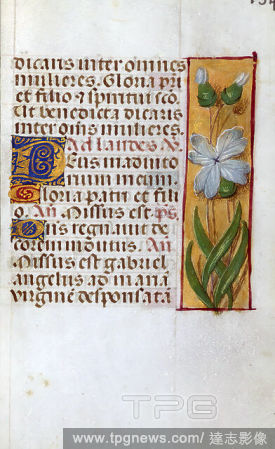 dicaris inter omnes
mulieres. Gloria pri
et filio ⁊ spiritui sco.
Et benedicta dicaris
inter oms mulieres.
Ad laudes
Deus in adiuto
rium meum.
Gloria patri et fili
o. An. Missus est. ps.
Dns regnauit de
corem indutus. An.
Missus est gabriel
angelus ad maria
virginē desponsatā
TPG
www.tpgnews.com/達志影像